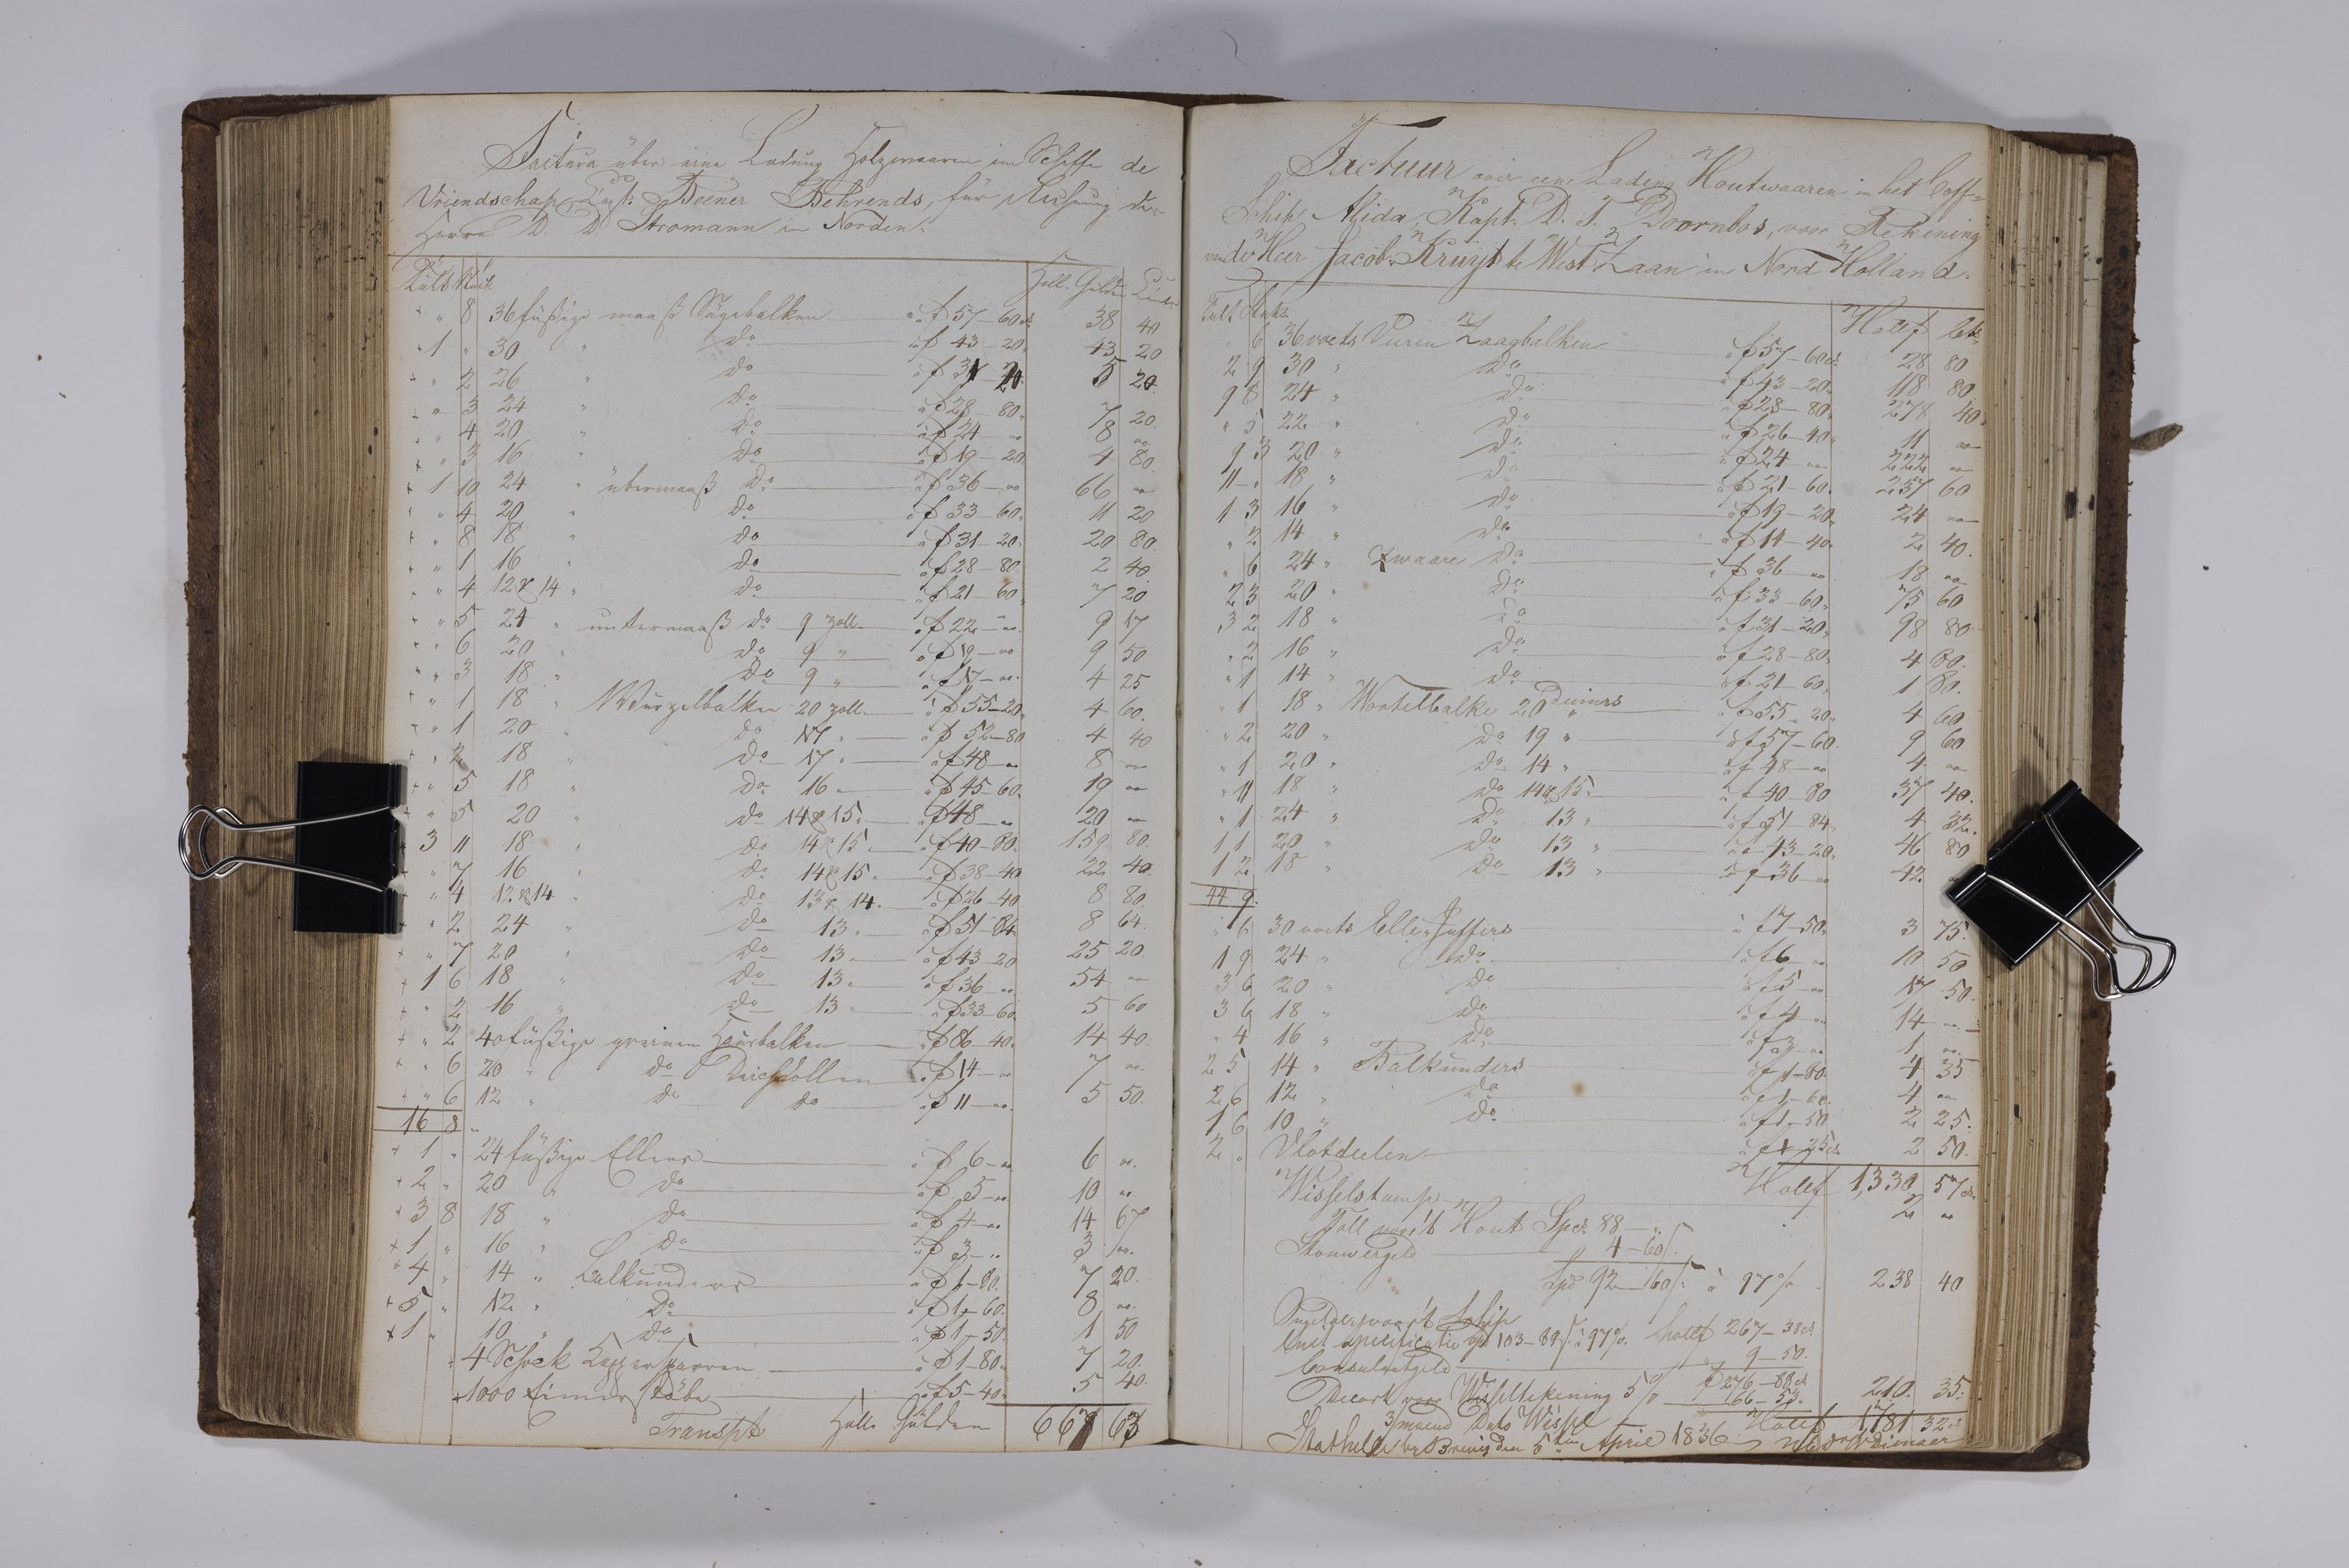 Factura über eine Ladung Holzwaaren im Schiffe de
Vriendschap, Capt: Beener Behrends, für Rechnung des
Herrn D. D. Stromann in Norden.
Holl. Gulden
" 8 36 füßige maaß Sägebalken à f 57-60 ct 38 40
1 " 30 " do à f 43-20 43 20
" 2 26 " do 5 20
" 3 24 " do à f 28-80 7 20
" 4 20 " do à f 24-" 8 "
" 3 16 " do à f 19-20 4 80
1 10 24 " übermaaß do à f 36-" 66 "
" 4 20 " do à f 33-60 11 20
" 8 18 " do à f 31-20 20 80
" 1 16 " do à f 28-80 2 40
" 4 12 & 14 " do à f 21-60 7 20
" 5 24 " untermaaß do 9 zoll à f 22-" 9 17
" 6 20 " do 9 " à f 19-" 9 50
" 3 18 " do 9 " à f 17-" 4 25
" 1 18 " Wurzelbalken 20 zoll à f 55-20 4 60
" 1 20 " do 17 " à f 52-80 4 40
" 2 18 " do 17 " à f 48-" 8 "
" 5 18 " do 16 " à f 45-60 19 "
" 5 20 " do 14 & 15 " à f 48-" 20 "
3 11 18 " do 14 & 15 " à f 40-80 159 80
" 7 16 " do 14 & 15 " à f 38-40 22 40
" 4 12 & 14 " do 13 & 14 " à f 26-40 8 80
" 2 24 " do 13 " à f 51-84 8 64
" 7 20 " do 13 " à f 43-20 25 20
1 6 18 " do 13 " à f 36-" 54 "
" 2 16 " do 13 " à f 33-60 5 60
" 2 40 füßige greinen à f 86-40 14 40
" 6 20 " do à f 14-" 7 "
" 6 12 " do do à f 11-" 5 50
16 8 "
1 " 24 füßige Ellens à f 6-" 6 "
2 " 20 " do à f 5-" 10 "
3 8 18 " do à f 4-" 14 67
1 " 16 " do à f 3-" 3 "
4 " 14 " Balkunders à f 1-80 7 20
5 " 12 " do à f 1-60 8 "
1 " 10 " do à f 1-50 1 50
4 Schock à f 1-80 7 20
1000 Eimerstäbe à f 5-40 5 40
Transpt Holl. Gulden 667 63
Factuur over eene Lading Houtwaaren in het Coff-
Schip Alida, Kapt. D. T. Doornbos, voor Rekening
van de Heer Jacob Kruyt te West Zaan in Nord Holland.
Tult Stuks Hollf Cts
" 6 36 voets Vuren Zaagbalken à f 57-60 ct 28 80
2 9 30 " do à f 43-20 118 80
9 8 24 " do à f 28-80 278 40
" 5 22 " do à f 26-40 11 "
9 3 20 " do à f 24-" 222 "
11 " 18 " do à f 21-60 237 60
1 3 16 " do à f 19-20 24 "
" 2 14 " do à f 14-40 2 40
" 6 24 " Zwaare do à f 36-" 18 "
2 3 20 " do à f 33-60 75 60
3 2 18 " do à f 31-20 98 80
" 2 16 " do à f 28-80 4 80
" 1 14 " do à f 21-60 1 80
" 1 18 " Wortelbalke 20 Duims à f 55-20 4 60
" 2 20 " do 19 " à f 57-60 9 60
" 1 20 " do 14 " à f 48-" 4 "
" 11 18 " do 14 & 15 " à f 40-80 37 40
" 1 24 " do 13 " à f 51-84 4 32
1 1 20 " do 13 " à f 43-20 46 80
1 2 18 " do 13 " à f 36-" 42 "
44 9
" 6 30 voets Ellen Juffers à f 7-50 3 75
1 9 24 " do à f 6-" 10 50
3 6 20 " do à f 5-" 17 50
3 6 18 " do à f 4-" 14 "
" 4 16 " do à f 3-" 1 "
2 5 14 " Balkunders à f 1-80 4 35
2 6 12 " do à f 1-60 4 "
1 6 10 " do à f 1-50 2 25
2 " Vlotdeelen à f 1-25 ct 2 50
Hollf 1,330 57 ct
Wisselstamp 2 "
Toll voor't Hout Spcs. 88-"
4-60
Spd 92-60 à 97% 238 40
Ongelder voor't Schip
Luit specificatie Sp 103-89 à 97% Hollf 267-38 ct
Consulaatgeld 9-50
f 276-88 ct
Decort voor Wisseltekening 5% 66-53 210 35
3/maend Dato Wissel Hollf 1,781 32 ct
Stathelle by Brevig den 5ten April 1836